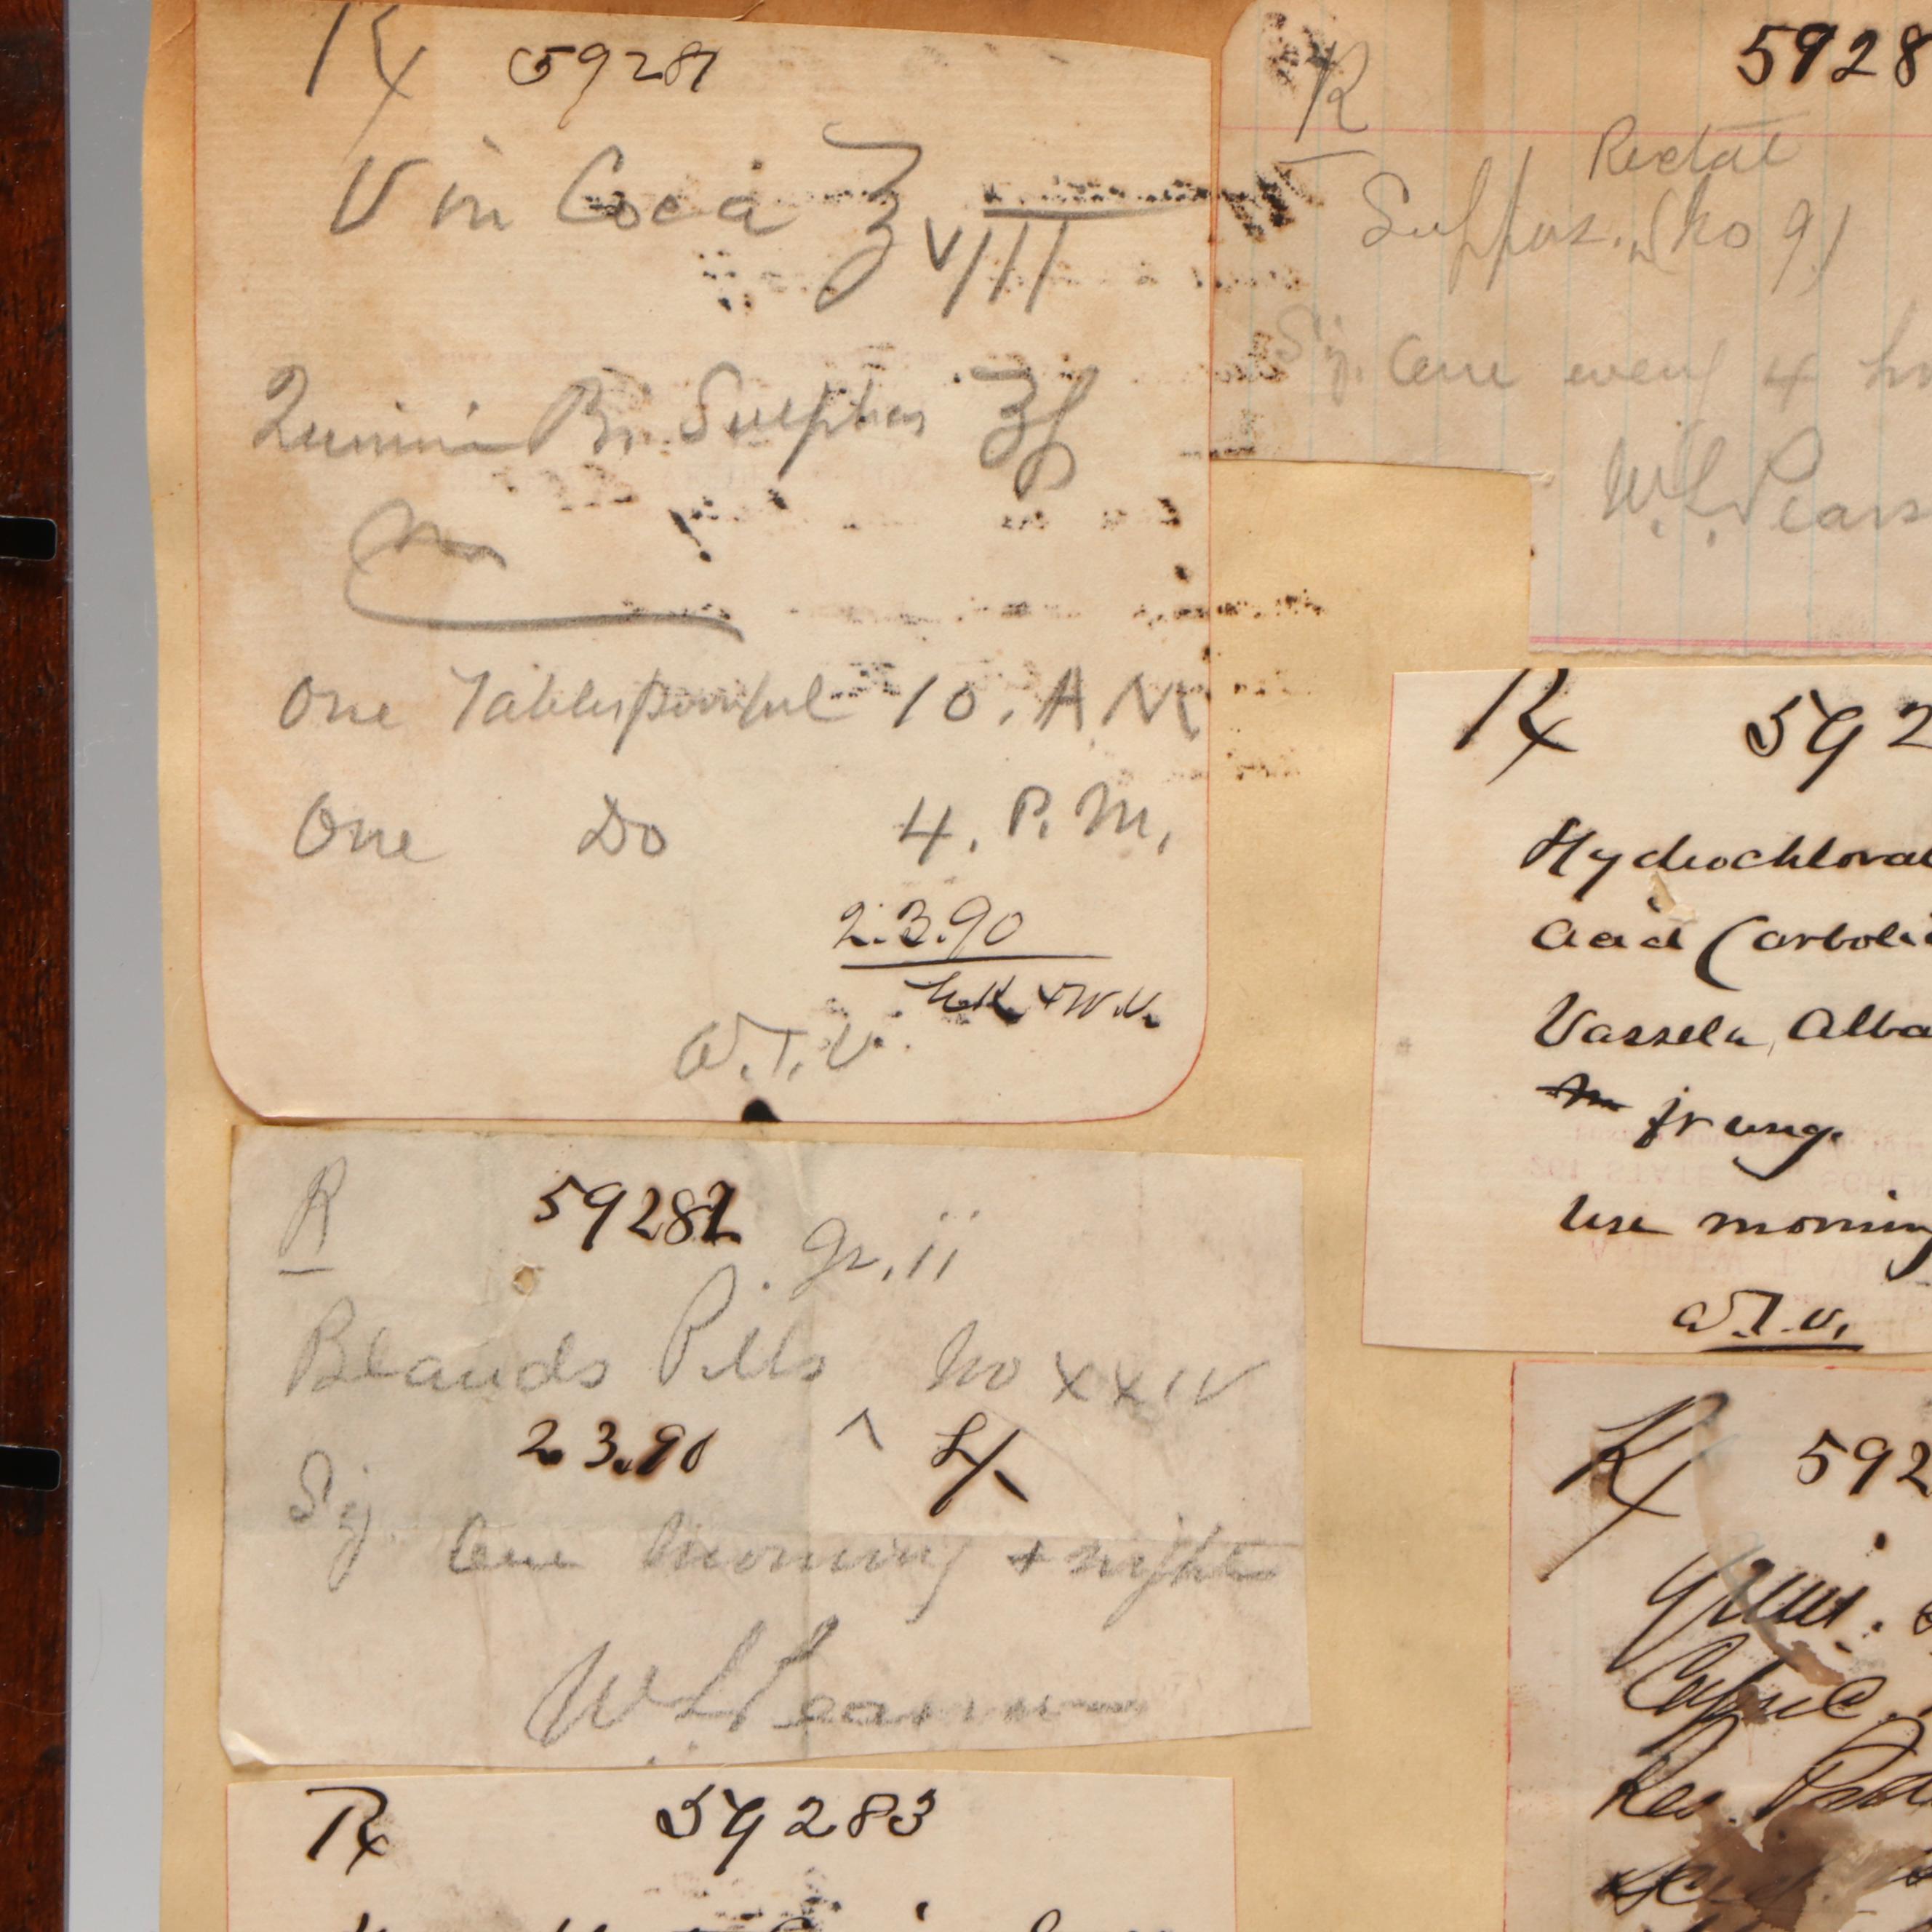 Rx 59281
Vin Coca ℥ VIII
Quinin Bi. Sulphas ʒ
M
One Tablespoonful 10. A M
One Do 4. P. M.
2.3.90
W.T.V.
R 59282
gr. ii
Blauds Pills No XXIV
2.3.90
Sig. One morning + night
W L Pearson
Rx 59283
R 5928
Rectal
Suppos. (No 9)
Sig. One every 4 h
W. L. Pears
Rx 592
Hydrochlorat
Acid Carbolic
Vasseln, Alba
M fr ung.
Use mornin
W.T.V.
Rx 592